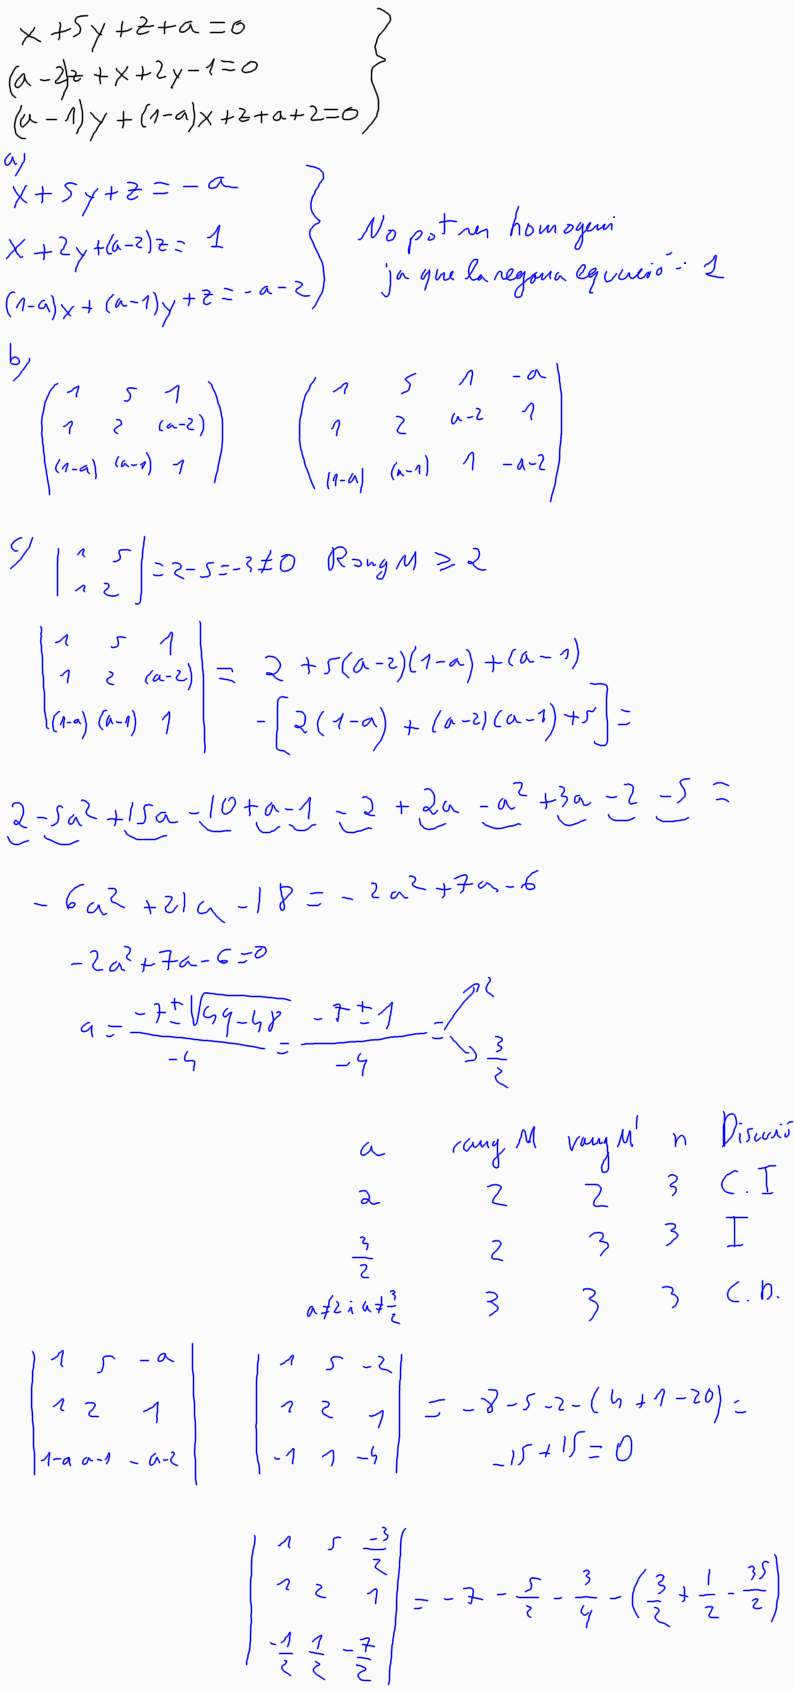 x + 5y + z + a = 0
(a - 2)z + x + 2y - 1 = 0
(a - 1)y + (1 - a)x + z + a + 2 = 0
a)
x + 5y + z = -a
x + 2y + (a-2)z = 1
(1-a)x + (a-1)y + z = -a-2
No pot ser homogeni
ja que la segona equació = 1
b)
1 5 1
1 2 (a-2)
(1-a) (a-1) 1
1 5 1 -a
1 2 a-2 1
(1-a) (a-1) 1 -a-2
c) | 1 5 |
| 1 2 | = 2-5 = -3 ≠ 0 Rang M ≥ 2
| 1 5 1 |
| 1 2 (a-2) | = 2 + 5(a-2)(1-a) + (a-1)
| (1-a) (a-1) 1 | -[2(1-a) + (a-2)(a-1) + 5] =
2 - 5a² + 15a - 10 + a - 1 - 2 + 2a - a² + 3a - 2 - 5 =
- 6a² + 21a - 18 = - 2a² + 7a - 6
-2a² + 7a - 6 = 0
a = (-7 ± √49-48) / -4 = (-7 ± 1) / -4 = 2
3/2
a rang M rang M' n Discusió
2 2 2 3 C.I
3/2 2 3 3 I
a≠2 i a≠3/2 3 3 3 C.D.
| 1 5 -a | | 1 5 -2 |
| 1 2 1 | | 1 2 1 | = -8-5-2-(4+1-20) =
| 1-a a-1 -a-2 | | -1 1 -4 | -15+15 = 0
| 1 5 -3/2 |
| 1 2 1 | = -7 - 5/2 - 3/4 - (3/2 + 1/2 - 35/2)
| -1/2 1/2 -7/2 |